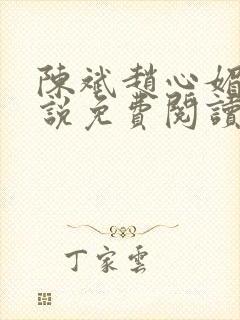 陳斌趙心媚
說免費閱讀
丁家雲